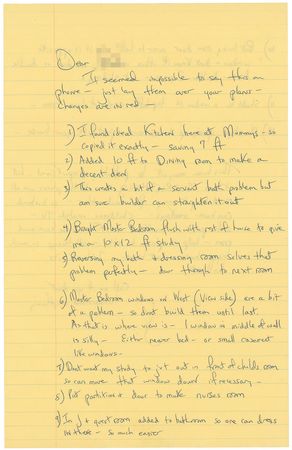 Dear
It seemed impossible to say this on
phone — just lay them over your plans —
changes are in red —
1) I found ideal Kitchen here at Mummys - so
copied it exactly — saving 7 ft
2) Added 10 ft to Dining room to make a
decent den
3) This creates a bit of a servant bath problem but
am sure builder can straighten it out
4) Bought Master Bedroom flush with rest of house to give
me a 10x12 ft study
5) Reversing my bath + dressing room solves that
problem perfectly — door through to next room
6) Master Bedroom windows on West (View side) are a bit
of a problem — so dont build them until last
As that is where view is — 1 window in middle of wall
is silly — Either never bed - or small casement
like windows —
7) Dont want my study to jut out in front of childs room
so can move that window down if necessary —
8) Put partition + door to make nurses room
9) In J + guest room added to bathroom so one can dress
in there — so much easier